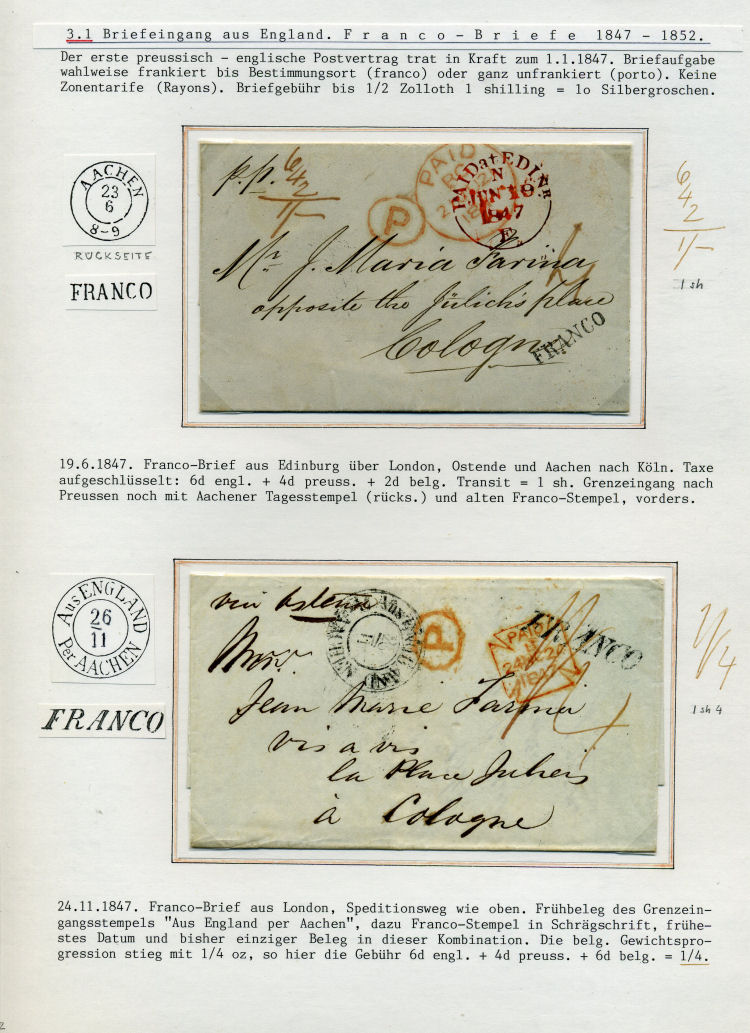 3.1 Briefeingang aus England. F r a n c o - B r i e f e 1847 - 1852.
Der erste preussisch - englische Postvertrag trat in Kraft zum 1.1.1847. Briefaufgabe
wahlweise frankiert bis Bestimmungsort (franco) oder ganz unfrankiert (porto). Keine
Zonentarife (Rayons). Briefgebühr bis 1/2 Zolloth 1 shilling = 1o Silbergroschen.
AACHEN
23
6
8-9
RÜCKSEITE
FRANCO
p.p.
6
4
2
1/-
PAID
P
PAID at EDINR
N
JUN 19
1847
E
Mr. J. Maria Farina
opposite the Jülich's place
Cologne
FRANCO
6
4
2
1/-
1 sh
19.6.1847. Franco-Brief aus Edinburg über London, Ostende und Aachen nach Köln. Taxe
aufgeschlüsselt: 6d engl. + 4d preuss. + 2d belg. Transit = 1 sh. Grenzeingang nach
Preussen noch mit Aachener Tagesstempel (rücks.) und alten Franco-Stempel, vorders.
Aus ENGLAND
26
11
Per AACHEN
FRANCO
via Ostende
P
PAID
24 NO 24
1847
FRANCO
Monr.
Jean Marie Farina
vis a vis
la Place Juliers
à Cologne
1/4
1 sh 4
24.11.1847. Franco-Brief aus London, Speditionsweg wie oben. Frühbeleg des Grenzein-
gangsstempels "Aus England per Aachen", dazu Franco-Stempel in Schrägschrift, frühe-
stes Datum und bisher einziger Beleg in dieser Kombination. Die belg. Gewichtspro-
gression stieg mit 1/4 oz, so hier die Gebühr 6d engl. + 4d preuss. + 6d belg. = 1/4.